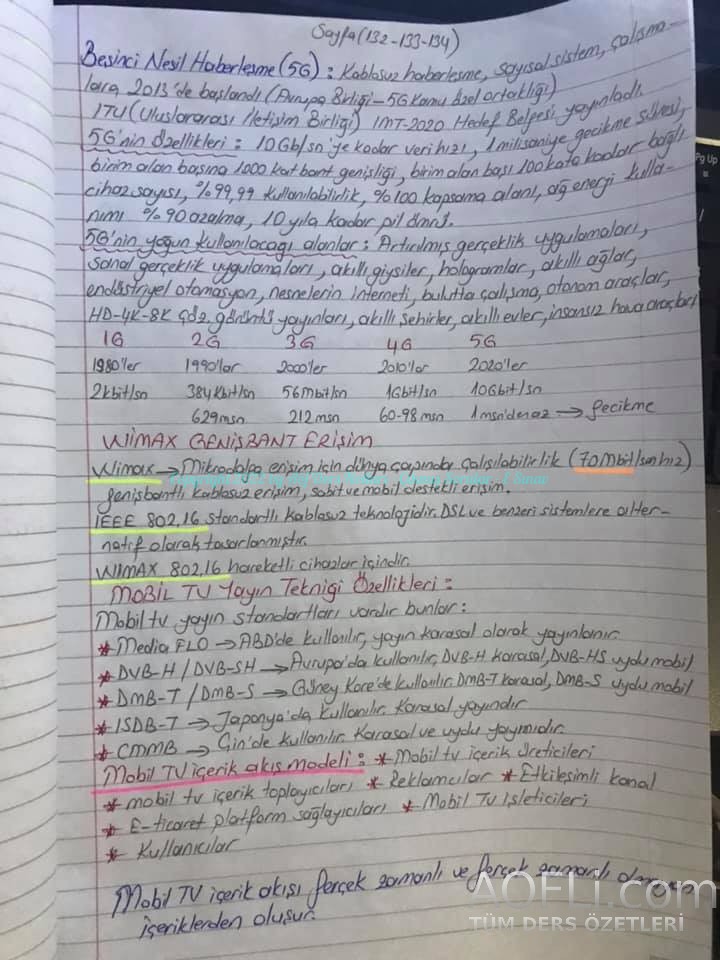 Sayfa (132-133-134)
Beşinci Nesil Haberleşme (5G) : Kablosuz haberleşme, sayısal sistem, çalışma-
lara 2013'de başlandı (Avrupa Birliği - 5G Kamu özel ortaklığı)
ITU (Uluslararası İletişim Birliği) IMT-2020 Hedef Belgesi yayınladı.
5G'nin Özellikleri : 10Gb/sn'ye kadar veri hızı, 1 milisaniye gecikme süresi,
birim alan başına 1000 kat bant genişliği, birim alan başı 100 kata kadar bağlı
cihaz sayısı, %99,99 kullanılabilirlik, %100 kapsama alanı, ağ enerji kulla-
nımı %90 azalma, 10 yıla kadar pil ömrü.
5G'nin yoğun kullanılacağı alanlar : Artırılmış gerçeklik uygulamaları,
sanal gerçeklik uygulamaları, akıllı giysiler, hologramlar, akıllı ağlar,
endüstriyel otomasyon, nesnelerin interneti, bulutta çalışma, otonom araçlar,
HD-4K-8K çöz. görüntü yayınları, akıllı şehirler, akıllı evler, insansız hava araçları
1G 2G 3G 4G 5G
1980'ler 1990'lar 2000'ler 2010'lar 2020'ler
2kbit/sn 384Kbit/sn 56Mbit/sn 1Gbit/sn 10Gbit/sn
629msn 212 msn 60-98 msn 1 msn'den az → Gecikme
WİMAX GENİŞBANT ERİŞİM
Wimax → Mikrodalga erişim için dünya çapında çalışılabilirlik (70Mbit/sn hız)
genişbantlı kablosuz erişim, sabit ve mobil destekli erişim.
IEEE 802.16 standartlı kablosuz teknolojidir. DSL ve benzeri sistemlere alter-
natif olarak tasarlanmıştır.
WİMAX 802.16 hareketli cihazlar içindir.
MOBİL TV Yayın Tekniği Özellikleri :
Mobil tv yayın standartları vardır bunlar :
* Media FLO → ABD'de kullanılır, yayın karasal olarak yayınlanır.
* DVB-H / DVB-SH → Avrupa'da kullanılır, DVB-H karasal, DVB-HS uydu mobil
* DMB-T / DMB-S → Güney Kore'de kullanılır. DMB-T karasal, DMB-S uydu mobil
* ISDB-T → Japonya'da kullanılır. Karasal yayındır
* CMMB → Çin'de kullanılır. Karasal ve uydu yayınıdır.
Mobil TV içerik akış modeli : * Mobil tv içerik üreticileri
* mobil tv içerik toplayıcıları * Reklamcılar * Etkileşimli kanal
* E-ticaret platform sağlayıcıları * Mobil TV İşleticileri
* Kullanıcılar
Mobil TV içerik akışı gerçek zamanlı ve gerçek zamanlı olmayan
içeriklerden oluşur.
AOFLi.com
TÜM DERS ÖZETLERİ